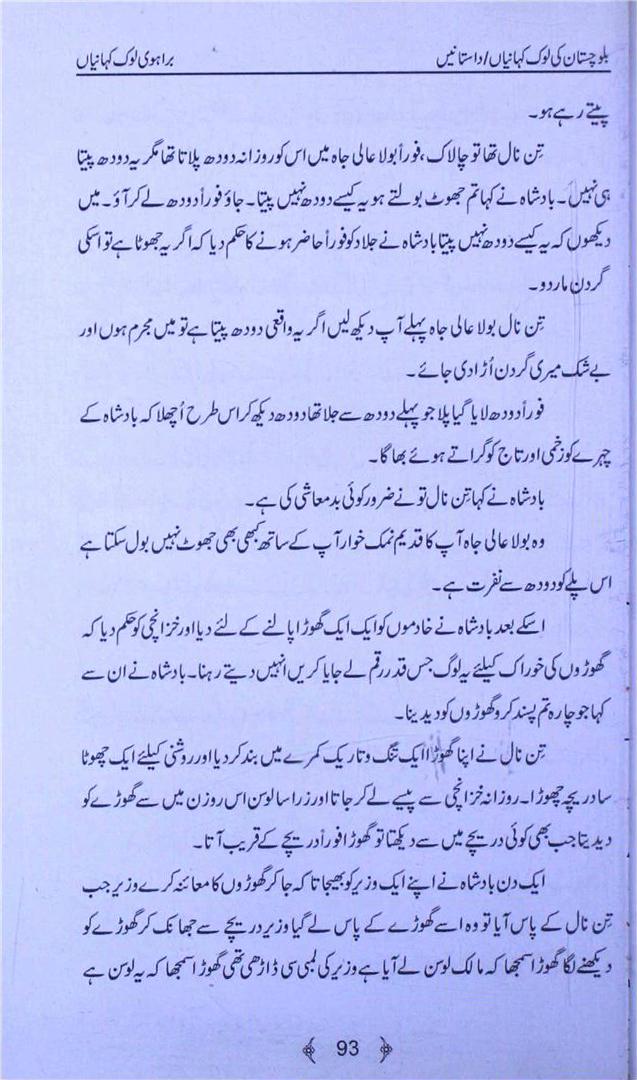 بلوچستان کی لوک کہانیاں/داستانیں
براہوی لوک کہانیاں
پیتے رہے ہو۔
تِن نال تھا تو چالاک، فوراً بولا عالی جاہ میں اس کو روزانہ دودھ پلاتا تھا مگر یہ دودھ پیتا
ہی نہیں۔ بادشاہ نے کہا تم جھوٹ بولتے ہو یہ کیسے دودھ نہیں پیتا۔ جاؤ فوراً دودھ لے کر آؤ۔ میں
دیکھوں کہ یہ کیسے دودھ نہیں پیتا بادشاہ نے جلاد کو فوراً حاضر ہونے کا حکم دیا کہ اگر یہ جھوٹا ہے تو اسکی
گردن مار دو۔
تِن نال بولا عالی جاہ پہلے آپ دیکھ لیں اگر یہ واقعی دودھ پیتا ہے تو میں مجرم ہوں اور
بے شک میری گردن اُڑا دی جائے۔
فوراً دودھ لایا گیا پلا جو پہلے دودھ سے جلا تھا دودھ دیکھ کر اس طرح اُچھلا کہ بادشاہ کے
چہرے کو زخمی اور تاج کو گراتے ہوئے بھاگا۔
بادشاہ نے کہا تِن نال تو نے ضرور کوئی بدمعاشی کی ہے۔
وہ بولا عالی جاہ آپ کا قدیم نمک خوار آپ کے ساتھ کبھی بھی جھوٹ نہیں بول سکتا ہے
اس پلے کو دودھ سے نفرت ہے۔
اسکے بعد بادشاہ نے خادموں کو ایک ایک گھوڑا پالنے کے لئے دیا اور خزانچی کو حکم دیا کہ
گھوڑوں کی خوراک کیلئے یہ لوگ جس قدر رقم لے جایا کریں انہیں دیتے رہنا۔ بادشاہ نے ان سے
کہا جو چارہ تم پسند کرو گھوڑوں کو دیدینا۔
تِن نال نے اپنا گھوڑا ایک تنگ و تاریک کمرے میں بند کر دیا اور روشنی کیلئے ایک چھوٹا
سا دریچہ چھوڑا۔ روزانہ خزانچی سے پیسے لے کر جاتا اور زرا سا لوسن اس روزن میں سے گھوڑے کو
دیدیتا جب بھی کوئی دریچے میں سے دیکھتا تو گھوڑا فوراً دریچے کے قریب آتا۔
ایک دن بادشاہ نے اپنے ایک وزیر کو بھیجا تا کہ جا کر گھوڑوں کا معائنہ کرے وزیر جب
تِن نال کے پاس آیا تو وہ اسے گھوڑے کے پاس لے گیا وزیر دریچے سے جھانک کر گھوڑے کو
دیکھنے لگا گھوڑا سمجھا کہ مالک لوسن لے آیا ہے وزیر کی لمبی سی ڈاڑھی تھی گھوڑا سمجھا کہ یہ لوسن ہے
93